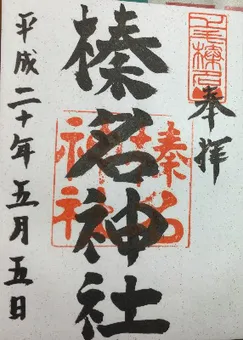 奉拝
榛名神社
榛名
神社
平成二十年五月五日